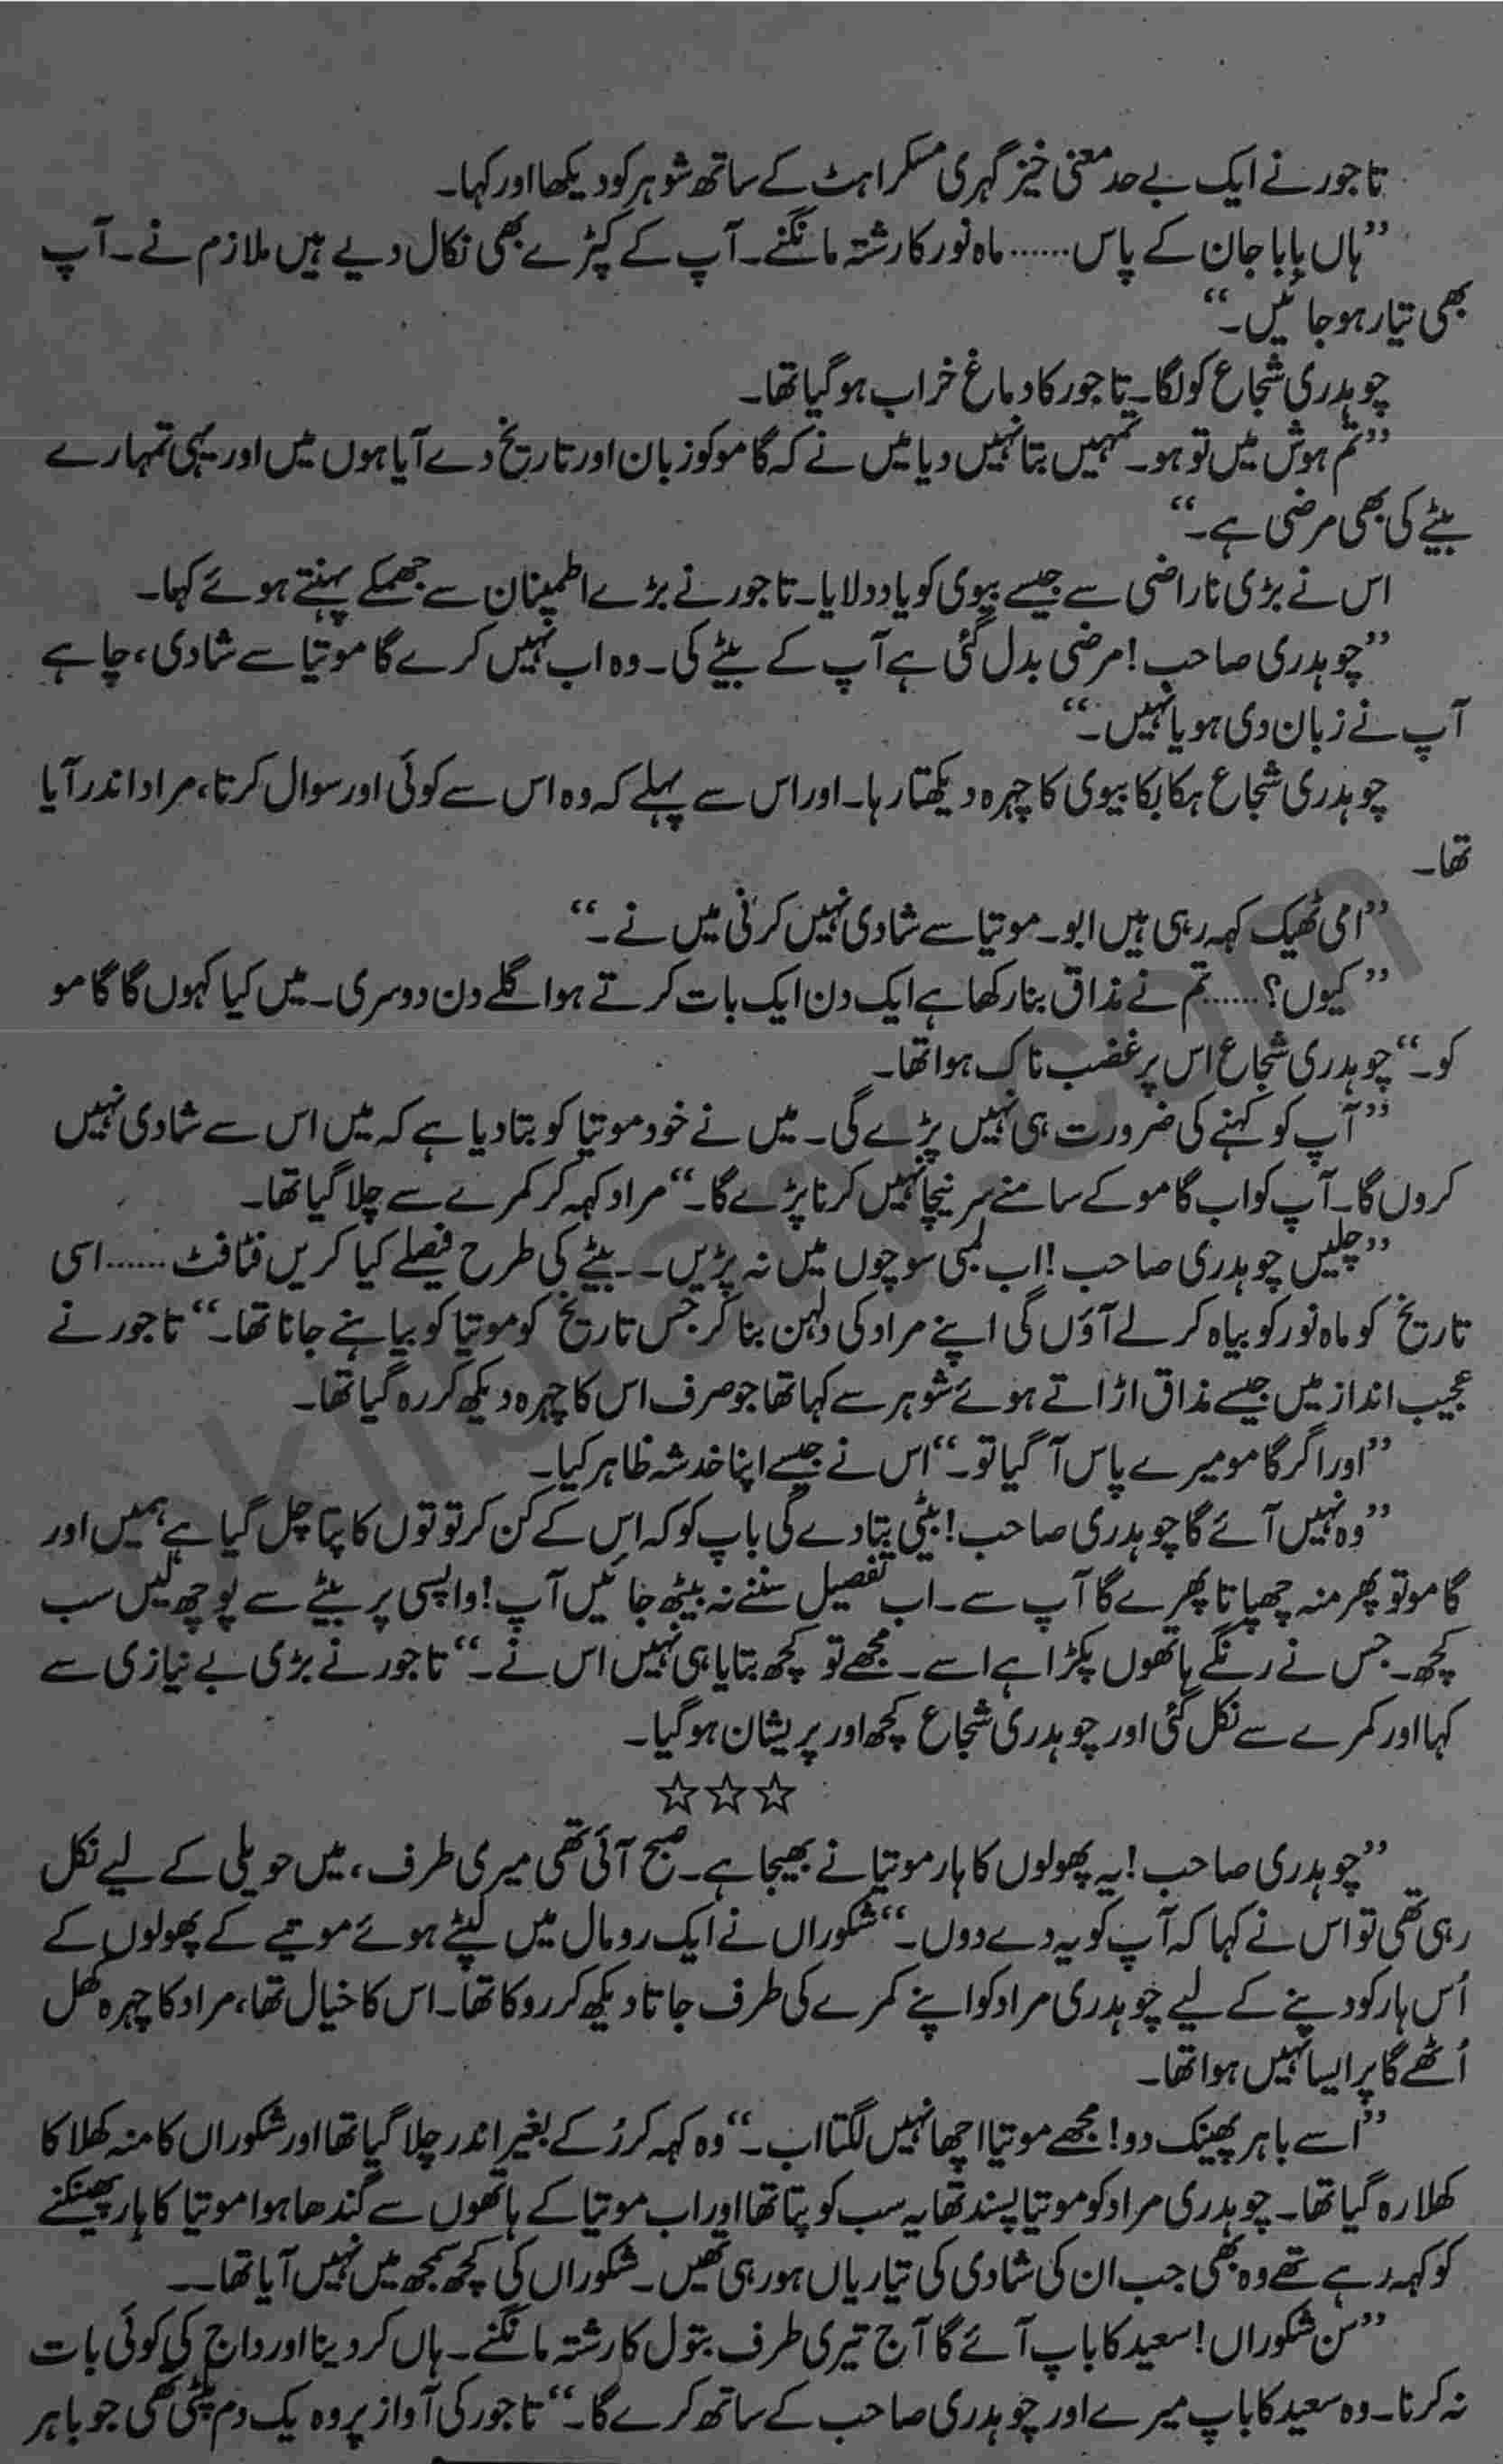 تاجور نے ایک بے حد معنی خیز گہری مسکراہٹ کے ساتھ شوہر کو دیکھا اور کہا۔
’’ہاں بابا جان کے پاس...... ماہ نور کا رشتہ مانگنے۔ آپ کے کپڑے بھی نکال دیے ہیں ملازم نے۔ آپ
بھی تیار ہو جائیں۔‘‘
چوہدری شجاع کو لگا۔ تاجور کا دماغ خراب ہو گیا تھا۔
’’تم ہوش میں تو ہو۔ تمہیں بتا نہیں دیا میں نے کہ گامو کو زبان اور تاریخ دے آیا ہوں میں اور یہی تمہارے
بیٹے کی بھی مرضی ہے۔‘‘
اس نے بڑی ناراضی سے جیسے بیوی کو یاد دلایا۔ تاجور نے بڑے اطمینان سے جھمکے پہنتے ہوئے کہا۔
’’چوہدری صاحب! مرضی بدل گئی ہے آپ کے بیٹے کی۔ وہ اب نہیں کرے گا موتیا سے شادی، چاہے
آپ نے زبان دی ہو یا نہیں۔‘‘
چوہدری شجاع ہکا بکا بیوی کا چہرہ دیکھتا رہا۔ اور اس سے پہلے کہ وہ اس سے کوئی اور سوال کرتا، مراد اندر آیا
تھا۔
’’امی ٹھیک کہہ رہی ہیں ابو۔ موتیا سے شادی نہیں کرنی میں نے۔‘‘
’’کیوں؟...... تم نے مذاق بنا رکھا ہے ایک دن ایک بات کرتے ہو اگلے دن دوسری۔ میں کیا کہوں گا گامو
کو۔‘‘ چوہدری شجاع اس پر غضب ناک ہوا تھا۔
’’آپ کو کہنے کی ضرورت ہی نہیں پڑے گی۔ میں نے خود موتیا کو بتا دیا ہے کہ میں اس سے شادی نہیں
کروں گا۔ آپ کو اب گامو کے سامنے سر نیچا نہیں کرنا پڑے گا۔‘‘ مراد کہہ کر کمرے سے چلا گیا تھا۔
’’چلیں چوہدری صاحب! اب لمبی سوچوں میں نہ پڑیں۔۔ بیٹے کی طرح فیصلے کیا کریں فٹافٹ...... اسی
تاریخ کو ماہ نور کو بیاہ کر لے آؤں گی اپنے مراد کی دلہن بنا کر جس تاریخ کو موتیا کو بیاہنے جانا تھا۔‘‘ تاجور نے
عجیب انداز میں جیسے مذاق اڑاتے ہوئے شوہر سے کہا تھا جو صرف اس کا چہرہ دیکھ کر رہ گیا تھا۔
’’اور اگر گامو میرے پاس آ گیا تو۔‘‘ اس نے جیسے اپنا خدشہ ظاہر کیا۔
’’وہ نہیں آئے گا چوہدری صاحب! بیٹی بتا دے گی باپ کو کہ اس کے کن کرتوتوں کا پتا چل گیا ہے ہمیں اور
گامو تو پھر منہ چھپاتا پھرے گا آپ سے۔ اب تفصیل سننے نہ بیٹھ جائیں آپ! واپسی پر بیٹے سے پوچھ لیں سب
کچھ۔ جس نے رنگے ہاتھوں پکڑا ہے اسے۔ مجھے تو کچھ بتایا ہی نہیں اس نے۔‘‘ تاجور نے بڑی بے نیازی سے
کہا اور کمرے سے نکل گئی اور چوہدری شجاع کچھ اور پریشان ہو گیا۔
☆☆☆
’’چوہدری صاحب! یہ پھولوں کا ہار موتیا نے بھیجا ہے۔ صبح آئی تھی میری طرف، میں حویلی کے لیے نکل
رہی تھی تو اس نے کہا کہ آپ کو یہ دے دوں۔‘‘ شکوراں نے ایک رومال میں لپٹے ہوئے موتیے کے پھولوں کے
اُس ہار کو دینے کے لیے چوہدری مراد کو اپنے کمرے کی طرف جاتا دیکھ کر روکا تھا۔ اس کا خیال تھا، مراد کا چہرہ کھل
اُٹھے گا پر ایسا نہیں ہوا تھا۔
’’اسے باہر پھینک دو! مجھے موتیا اچھا نہیں لگتا اب۔‘‘ وہ کہہ کر رُکے بغیر اندر چلا گیا تھا اور شکوراں کا منہ کھلا کا
کھلا رہ گیا تھا۔ چوہدری مراد کو موتیا پسند تھا یہ سب کو پتا تھا اور اب موتیا کے ہاتھوں سے گندھا ہوا موتیا کا ہار پھینکنے
کو کہہ رہے تھے وہ بھی جب ان کی شادی کی تیاریاں ہو رہی تھیں۔ شکوراں کی کچھ سمجھ میں نہیں آیا تھا۔۔
’’سن شکوراں! سعید کا باپ آئے گا آج تیری طرف بتول کا رشتہ مانگنے۔ ہاں کر دینا اور داج کی کوئی بات
نہ کرنا۔ وہ سعید کا باپ میرے اور چوہدری صاحب کے ساتھ کرے گا۔‘‘ تاجور کی آواز پر وہ یک دم پلٹی تھی جو باہر